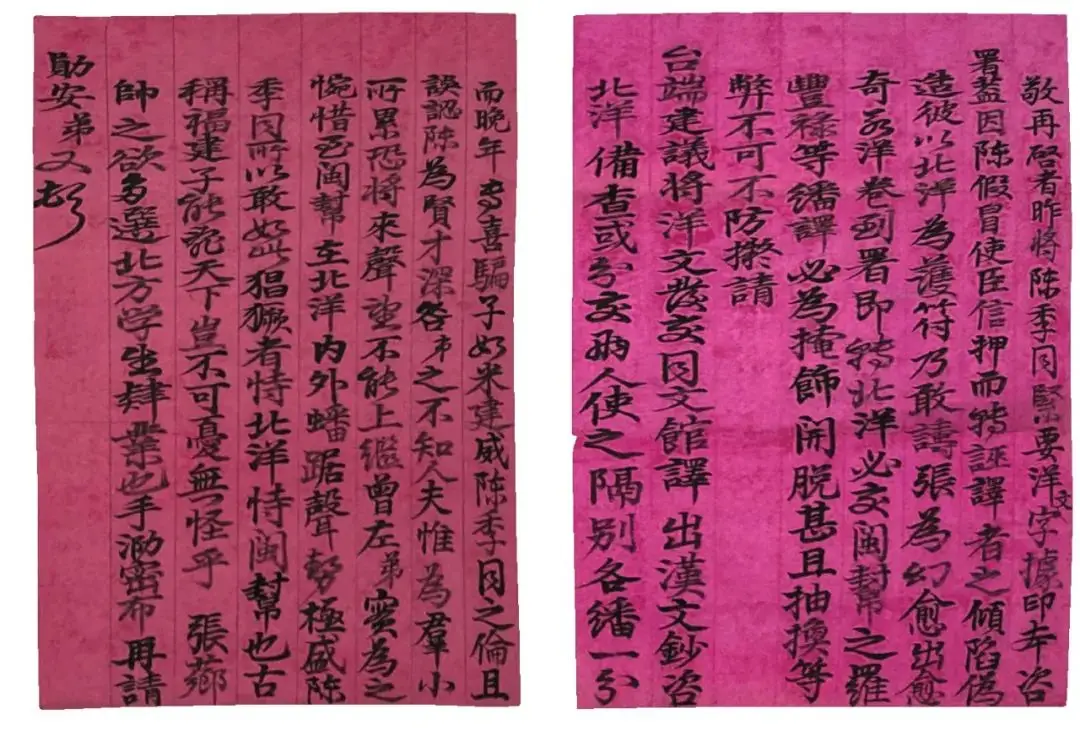 敬再啓者昨將陳季同緊要洋文字據印本咨
署蓋因陳假冒使臣信押而轉誣譯者之傾陷偽
造彼以北洋為護符乃敢譸張為幻愈出愈
奇若洋卷到署即轉北洋必交閩幫之羅
豐祿等繙譯必為掩飾開脫甚且抽換等
弊不可不防擬請
台端建議將洋文發交同文館譯出漢文鈔咨
北洋備查或分交兩人使之隔別各繙一分
而晚年專喜騙子如米建威陳季同之倫且
誤認陳為賢才深咎弟之不知人夫惟為羣小
所累恐將來聲望不能上繼曾左弟實為之
惋惜至閩幫在北洋內外蟠踞聲勢極盛陳
季同所以敢如此猖獗者恃北洋恃閩幫也古
稱福建子能亂天下豈不可憂無怪乎 張薌
帥之欲多選北方学生肄業也手泐密布再請
勛安弟又頓